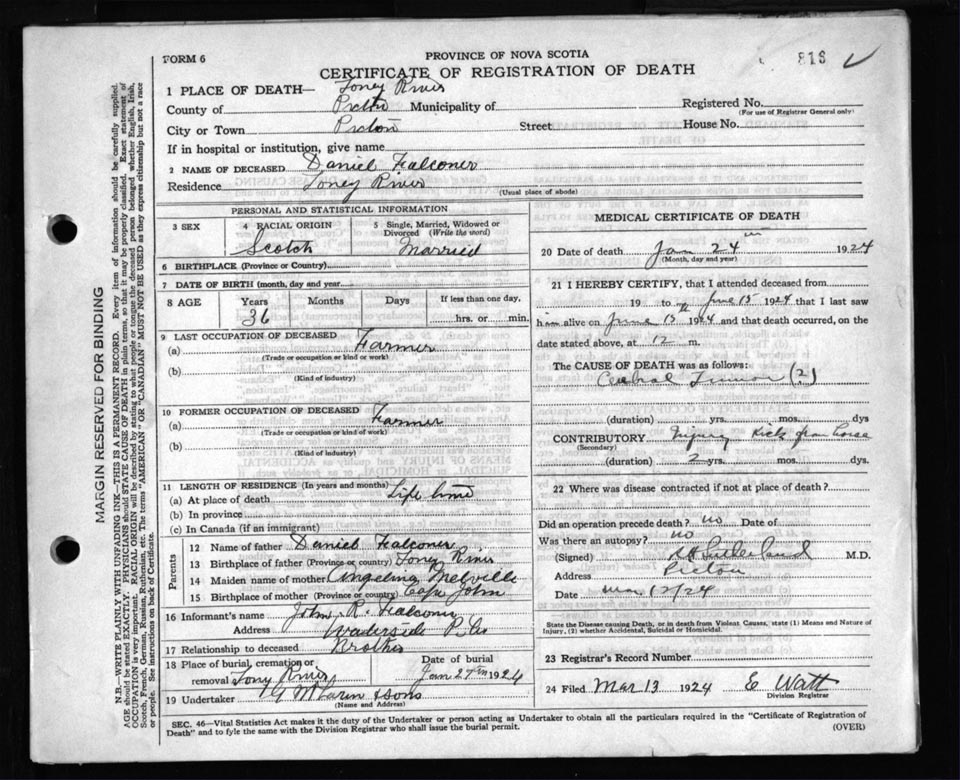 818
FORM 6
PROVINCE OF NOVA SCOTIA
CERTIFICATE OF REGISTRATION OF DEATH
1 PLACE OF DEATH— Toney River
County of Pictou Municipality of
Registered No.
(For use of Registrar General only)
City or Town Pictou Street House No.
If in hospital or institution, give name
2 NAME OF DECEASED Daniel Falconer
Residence Toney River
(Usual place of abode)
PERSONAL AND STATISTICAL INFORMATION
3 SEX
4 RACIAL ORIGIN Scotch
5 Single, Married, Widowed or Divorced (Write the word) Married
6 BIRTHPLACE (Province or Country)
7 DATE OF BIRTH (month, day and year)
8 AGE Years 36 Months Days If less than one day, hrs. or min.
9 LAST OCCUPATION OF DECEASED
(a) Farmer
(Trade or occupation or kind of work)
(b)
(Kind of industry)
10 FORMER OCCUPATION OF DECEASED
(a) Farmer
(Trade or occupation or kind of work)
(b)
(Kind of industry)
11 LENGTH OF RESIDENCE (In years and months)
(a) At place of death Life time
(b) In province
(c) In Canada (if an immigrant)
Parents
12 Name of father Daniel Falconer
13 Birthplace of father (Province or country) Toney River
14 Maiden name of mother Angelina Melville
15 Birthplace of mother (Province or Country) Cape John
16 Informant's name John R. Falconer
Address Waterside P. Co
17 Relationship to deceased Brother
18 Place of burial, cremation or removal Tony River
Date of burial Jan 27th 1924
19 Undertaker
(Name and Address)
MEDICAL CERTIFICATE OF DEATH
20 Date of death Jan 24th 1924
(Month, day and year)
21 I HEREBY CERTIFY, that I attended deceased from
19 to June 15th 1924 that I last saw
him alive on June 15 1924 and that death occurred, on
date stated above, at 12 m.
The CAUSE OF DEATH was as follows:
Cerebral Tumor (?)
(duration) yrs. mos. dys
CONTRIBUTORY Injury Kick from horse
(Secondary)
(duration) 2 yrs. mos. dys.
22 Where was disease contracted if not at place of death?
Did an operation precede death? no Date of
Was there an autopsy? no
(Signed) Sutherland M.D.
Address Pictou
Date Mar 12/24
State the Disease causing Death, or in death from Violent Causes, state (1) Means and Nature of
Injury, (2) whether Accidental, Suicidal or Homicidal.
23 Registrar's Record Number
24 Filed Mar 13 1924 E Watt
Division Registrar
SEC. 46—Vital Statistics Act makes it the duty of the Undertaker or person acting as Undertaker to obtain all the particulars required in the "Certificate of Registration of
Death" and to fyle the same with the Division Registrar who shall issue the burial permit.
(OVER)
MARGIN RESERVED FOR BINDING
N.B.—WRITE PLAINLY WITH UNFADING INK—THIS IS A PERMANENT RECORD. Every item of information should be carefully supplied.
AGE should be stated EXACTLY. PHYSICIANS should STATE CAUSE OF DEATH in plain terms, so that it may be properly classified. Exact statement of
OCCUPATION is very important. RACIAL ORIGIN will be described by stating to what people or tongue the deceased person belonged whether English, Irish,
Scotch, French, German, Russian, Ruthenian, etc. The terms "AMERICAN" OR "CANADIAN" MUST NOT BE USED as they express citizenship but not a race
or people. See instructions on back of Certificate.